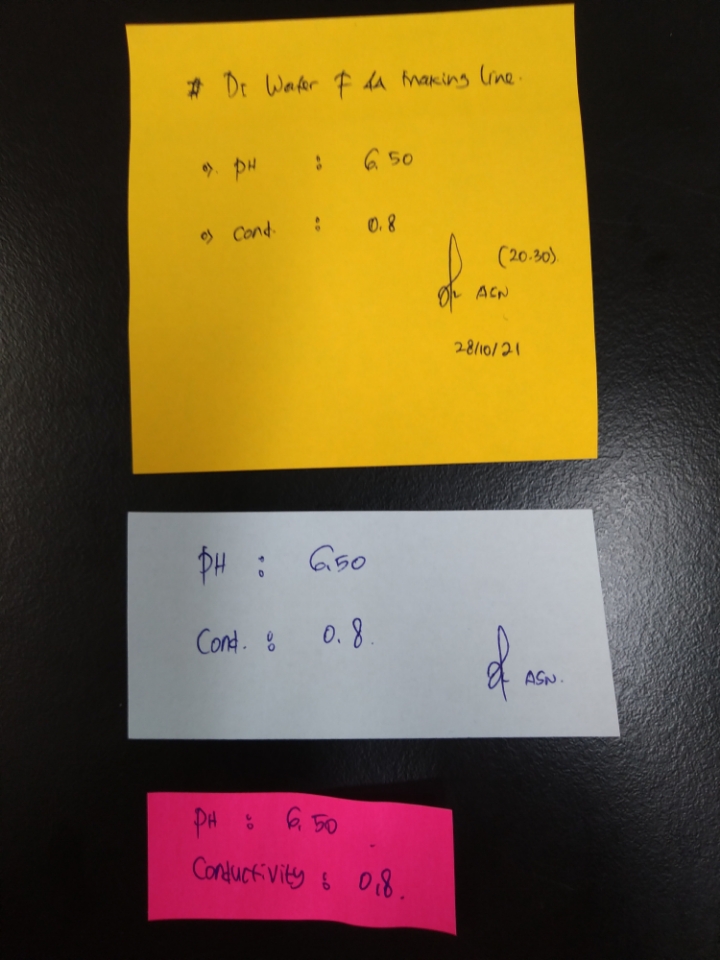 # DI Water F making line.
pH : 6.50
Cond. : 0.8
(20.30)
ASN
28/10/21
pH : 6.50
Cond. : 0.8.
ASN.
pH : 6.50
Conductivity : 0,8.